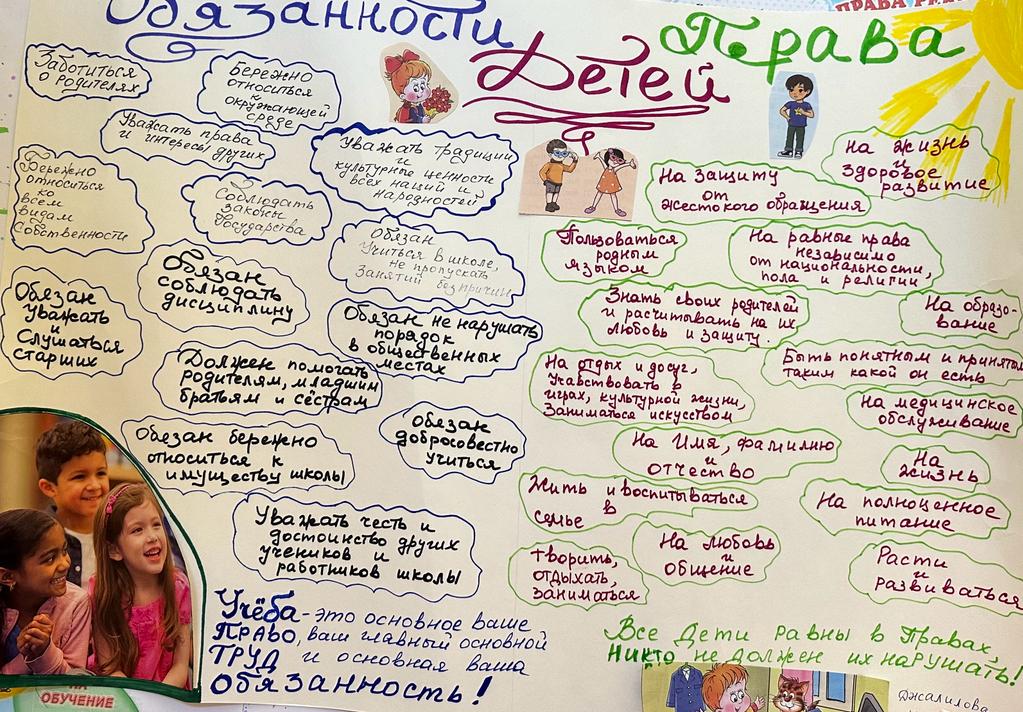 Обязанности
Детей
Права
ПРАВА
Заботиться
о родителях
Бережно
относиться
к
окружающей
среде
Уважать права
и интересы других
Уважать традиции
и
культурные ценности
всех наций и
народностей
Бережно
относиться
ко
всем
видам
Собственности
Соблюдать
законы
Государства
Обязан
Учиться в школе,
не пропускать
Занятий без причин
Обязан
соблюдать
дисциплину
Обязан
уважать
и
Слушаться
старших
Обязан не нарушать
порядок
в общественных
местах
Должен помогать
родителям, младшим
братьям и сёстрам
Обязан
добросовестно
учиться
Обязан бережно
относиться к
имуществу школы
Уважать честь и
достоинство других
учеников и
работников школы
Учёба - это основное ваше
ПРАВО, ваш главный основной
ТРУД и основная ваша
Обязанность!
НА
ОБУЧЕНИЕ
На жизнь
и
Здоровое
развитие
На защиту
от
жестокого обращения
Пользоваться
родным
языком
На равные права
независимо
от национальности,
пола и религии
Знать своих родителей
и расчитывать на их
любовь и защиту.
На образо-
вание
На отдых и досуг,
Учавствовать в
играх, культурной жизни,
Заниматься искусством
Быть понятным и принятым
таким какой он есть
На медицинское
обслуживание
На Имя, фамилию
и
отчество
На
жизнь
Жить и воспитываться
в
семье
На полноценное
питание
творить,
отдыхать,
заниматься
На любовь
и
общение
Расти
и
Развиваться
Все Дети равны в Правах,
Никто не должен их наРушать!
Джалилова